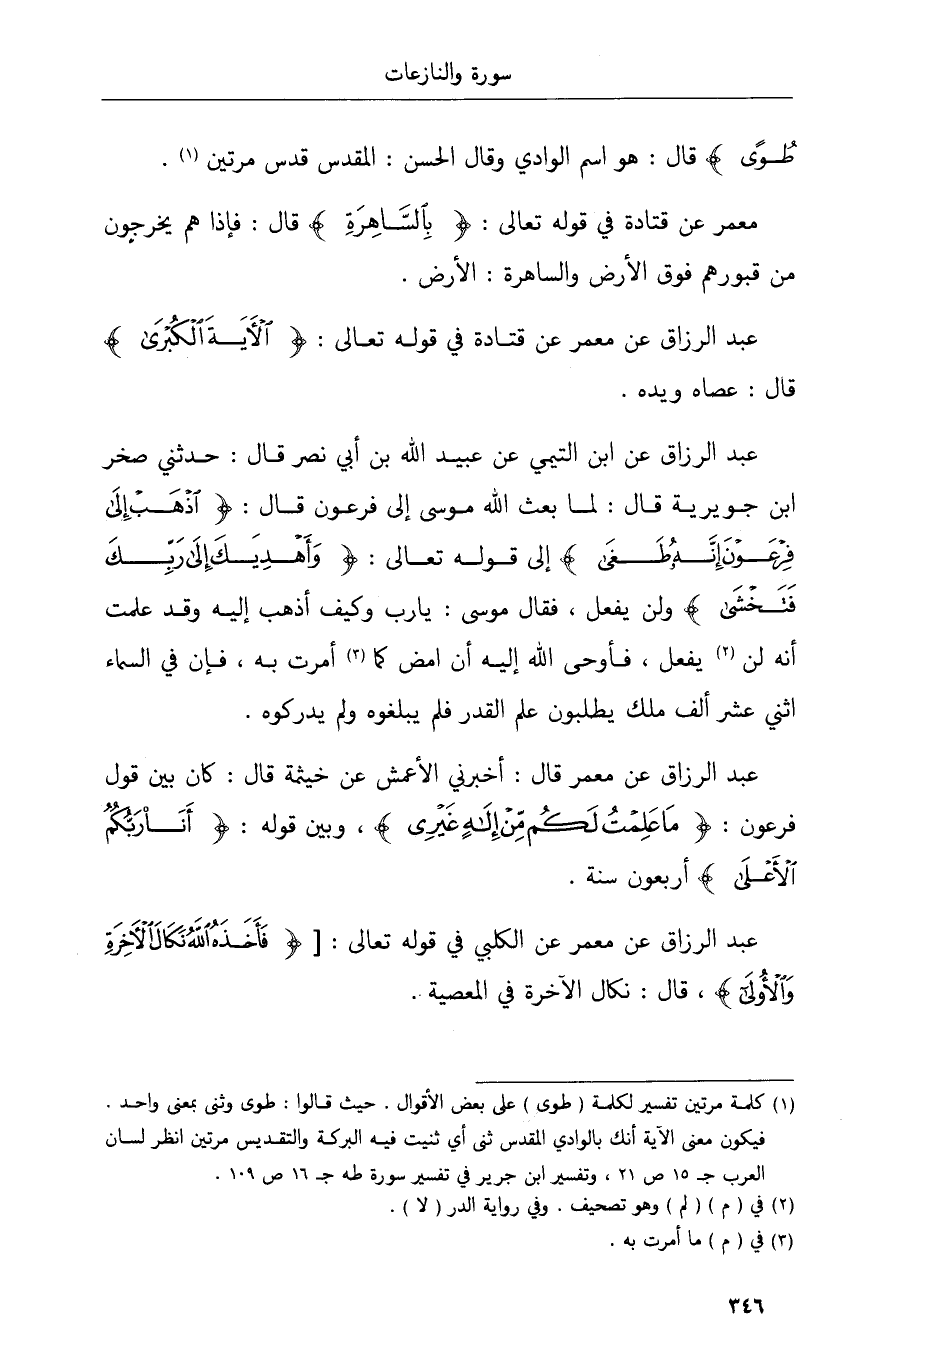 سورة والنازعات
طُــوًى ﴾ قال : هو اسم الوادي وقال الحسن : المقدس قدس مرتين (١) .
معمر عن قتادة في قوله تعالى : ﴿ بِٱلسَّـاهِرَةِ ﴾ قال : فإذا هم يخرجون
من قبورهم فوق الأرض والساهرة : الأرض .
عبد الرزاق عن معمر عن قتـادة في قولـه تعـالى : ﴿ ٱلْأٓيَـــةَ ٱلْكُبْرَىٰ ﴾
قال : عصاه ويده .
عبد الرزاق عن ابن التيمي عن عبيـد الله بن أبي نصر قـال : حـدثني صخر
ابن جـويريـة قـال : لمـا بعث الله مـوسى إلى فرعـون قـال : ﴿ ٱذْهَـــبْ إِلَىٰ
فِرْعَـــوْنَ إِنَّـــهُۥ طَـــغَىٰ ﴾ إلى قـولـه تعـالى : ﴿ وَأَهْـــدِيَـــكَ إِلَىٰ رَبِّـــكَ
فَتَـــخْشَىٰ ﴾ ولن يفعل ، فقال موسى : يارب وكيف أذهب إليـه وقـد علمت
أنه لن (٢) يفعل ، فـأوحى الله إليـه أن امض كما (٣) أمرت بـه ، فـإن في السماء
اثني عشر ألف ملك يطلبون علم القدر فلم يبلغوه ولم يدركوه .
عبد الرزاق عن معمر قال : أخبرني الأعمش عن خيثمة قال : كان بين قول
فرعون : ﴿ مَا عَلِمْتُ لَـــكُم مِّنْ إِلَـٰهٍ غَيْرِى ﴾ ، وبين قوله : ﴿ أَنَـــا۠ رَبُّكُمُ
ٱلْأَعْـــلَىٰ ﴾ أربعون سنة .
عبد الرزاق عن معمر عن الكلبي في قوله تعالى : [ ﴿ فَأَخَـــذَهُ ٱللَّهُ نَكَالَ ٱلْأٓخِرَةِ
وَٱلْأُولَىٰٓ ﴾ ، قال : نكال الآخرة في المعصية .
(١) كلمـة مرتين تفسير لكلمـة ( طوى ) على بعض الأقوال . حيث قـالوا : طوى وثنى بمعنى واحـد .
فيكون معنى الآية أنك بالوادي المقدس ثنى أي ثنيت فيـه البركـة والتقـديس مرتين انظر لسـان
العرب جـ ١٥ ص ٢١ ، وتفسير ابن جرير في تفسير سورة طه جـ ١٦ ص ١٠٩ .
(٢) في ( م ) ( لم ) وهو تصحيف . وفي رواية الدر ( لا ) .
(٣) في ( م ) ما أمرت به .
٣٤٦